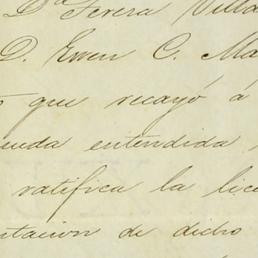 Dª Teresa Villa
D. Ewen C. Ma
que recayó á
entendida
ratifica la lice
tacion de dicho